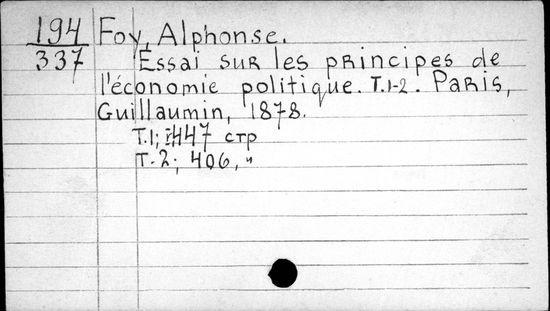 194 Foy, Alphonse.
337 Essai sur les principes de
l'économie politique. T.1-2. Paris,
Guillaumin, 1878.
T.1; 447 стр
T.2; 406, "